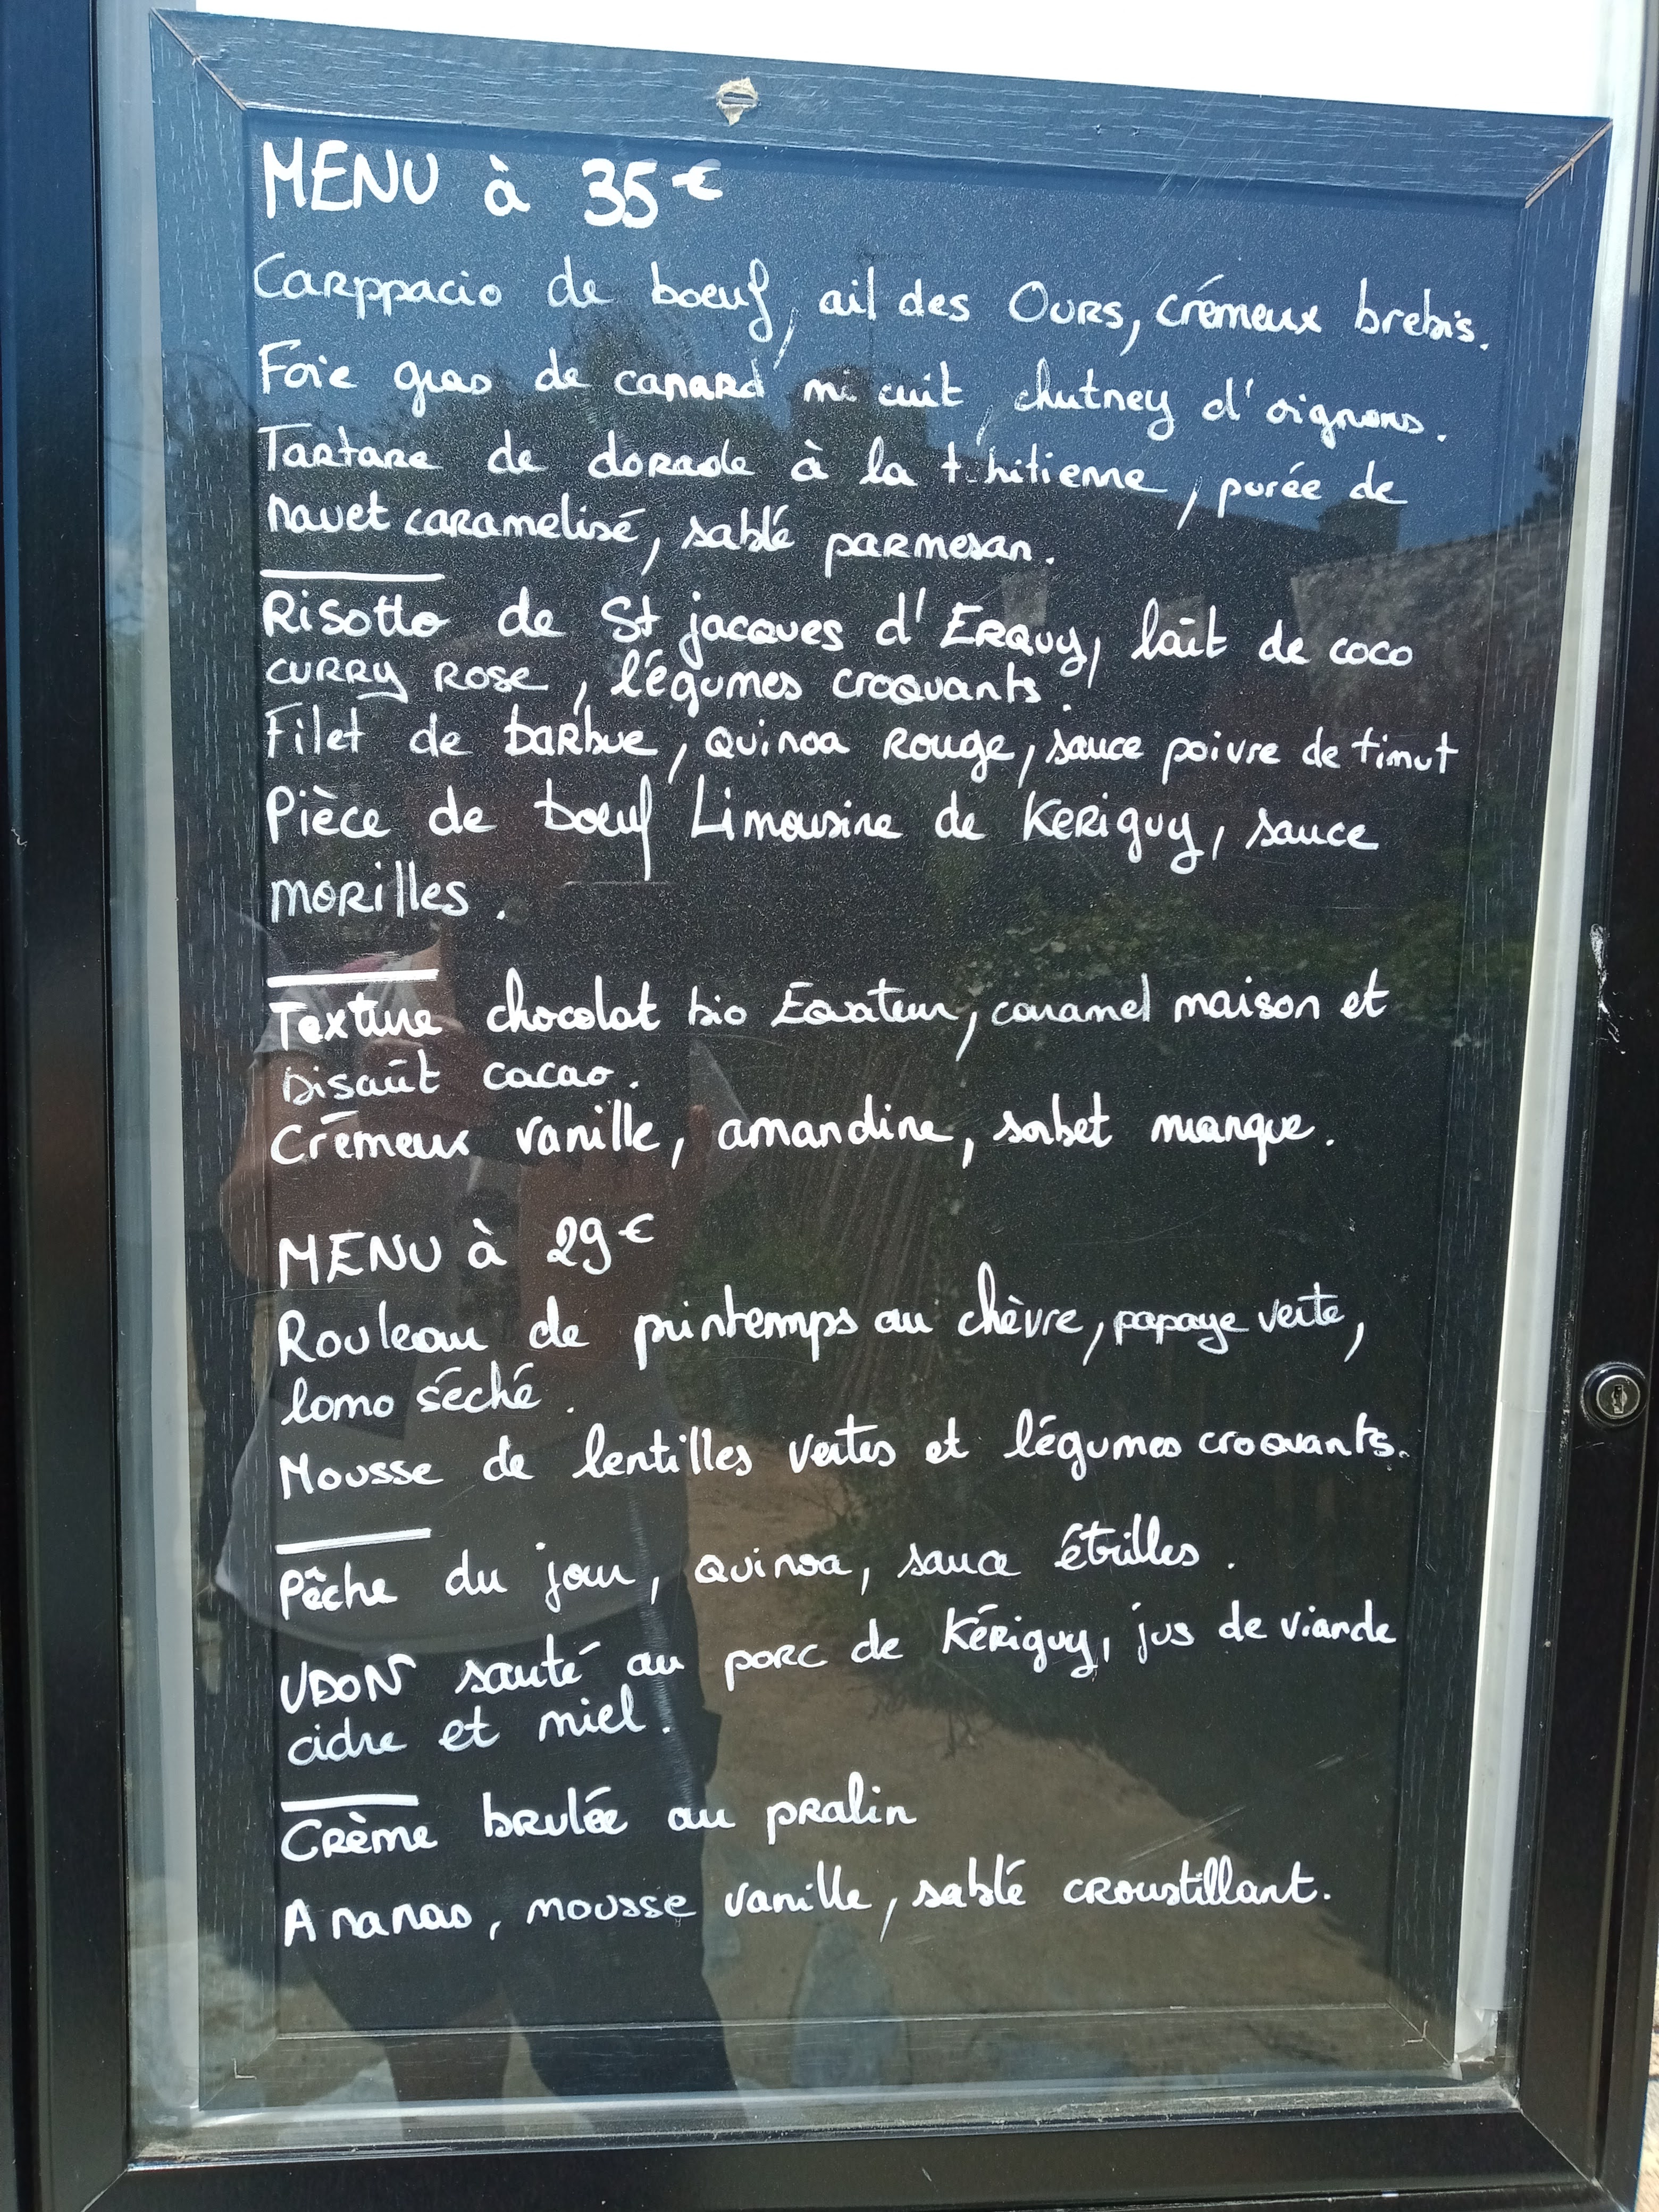 MENU à 35€
Carppacio de boeuf, ail des Ours, crémeux brebis.
Foie gras de canard mi cuit, chutney d'oignons.
Tartare de dorade à la t hitienne, purée de
navet caramelisé, sablé parmesan.
Risotto de St jacques d'Erquy, lait de coco
curry rose, légumes croquants.
Filet de barbue, quinoa rouge, sauce poivre de timut
Pièce de boeuf Limousine de Keriguy, sauce
morilles.
Texture chocolat bio Equateur, caramel maison et
biscuit cacao.
Crémeux vanille, amandine, sorbet mangue.
MENU à 29€
Rouleau de printemps au chèvre, papaye verte,
lomo séché.
Mousse de lentilles vertes et légumes croquants.
Pêche du jour, quinoa, sauce étrilles.
UDON sauté au porc de Kériguy, jus de viande
cidre et miel.
Crème brulée au pralin
Ananas, mousse vanille, sablé croustillant.